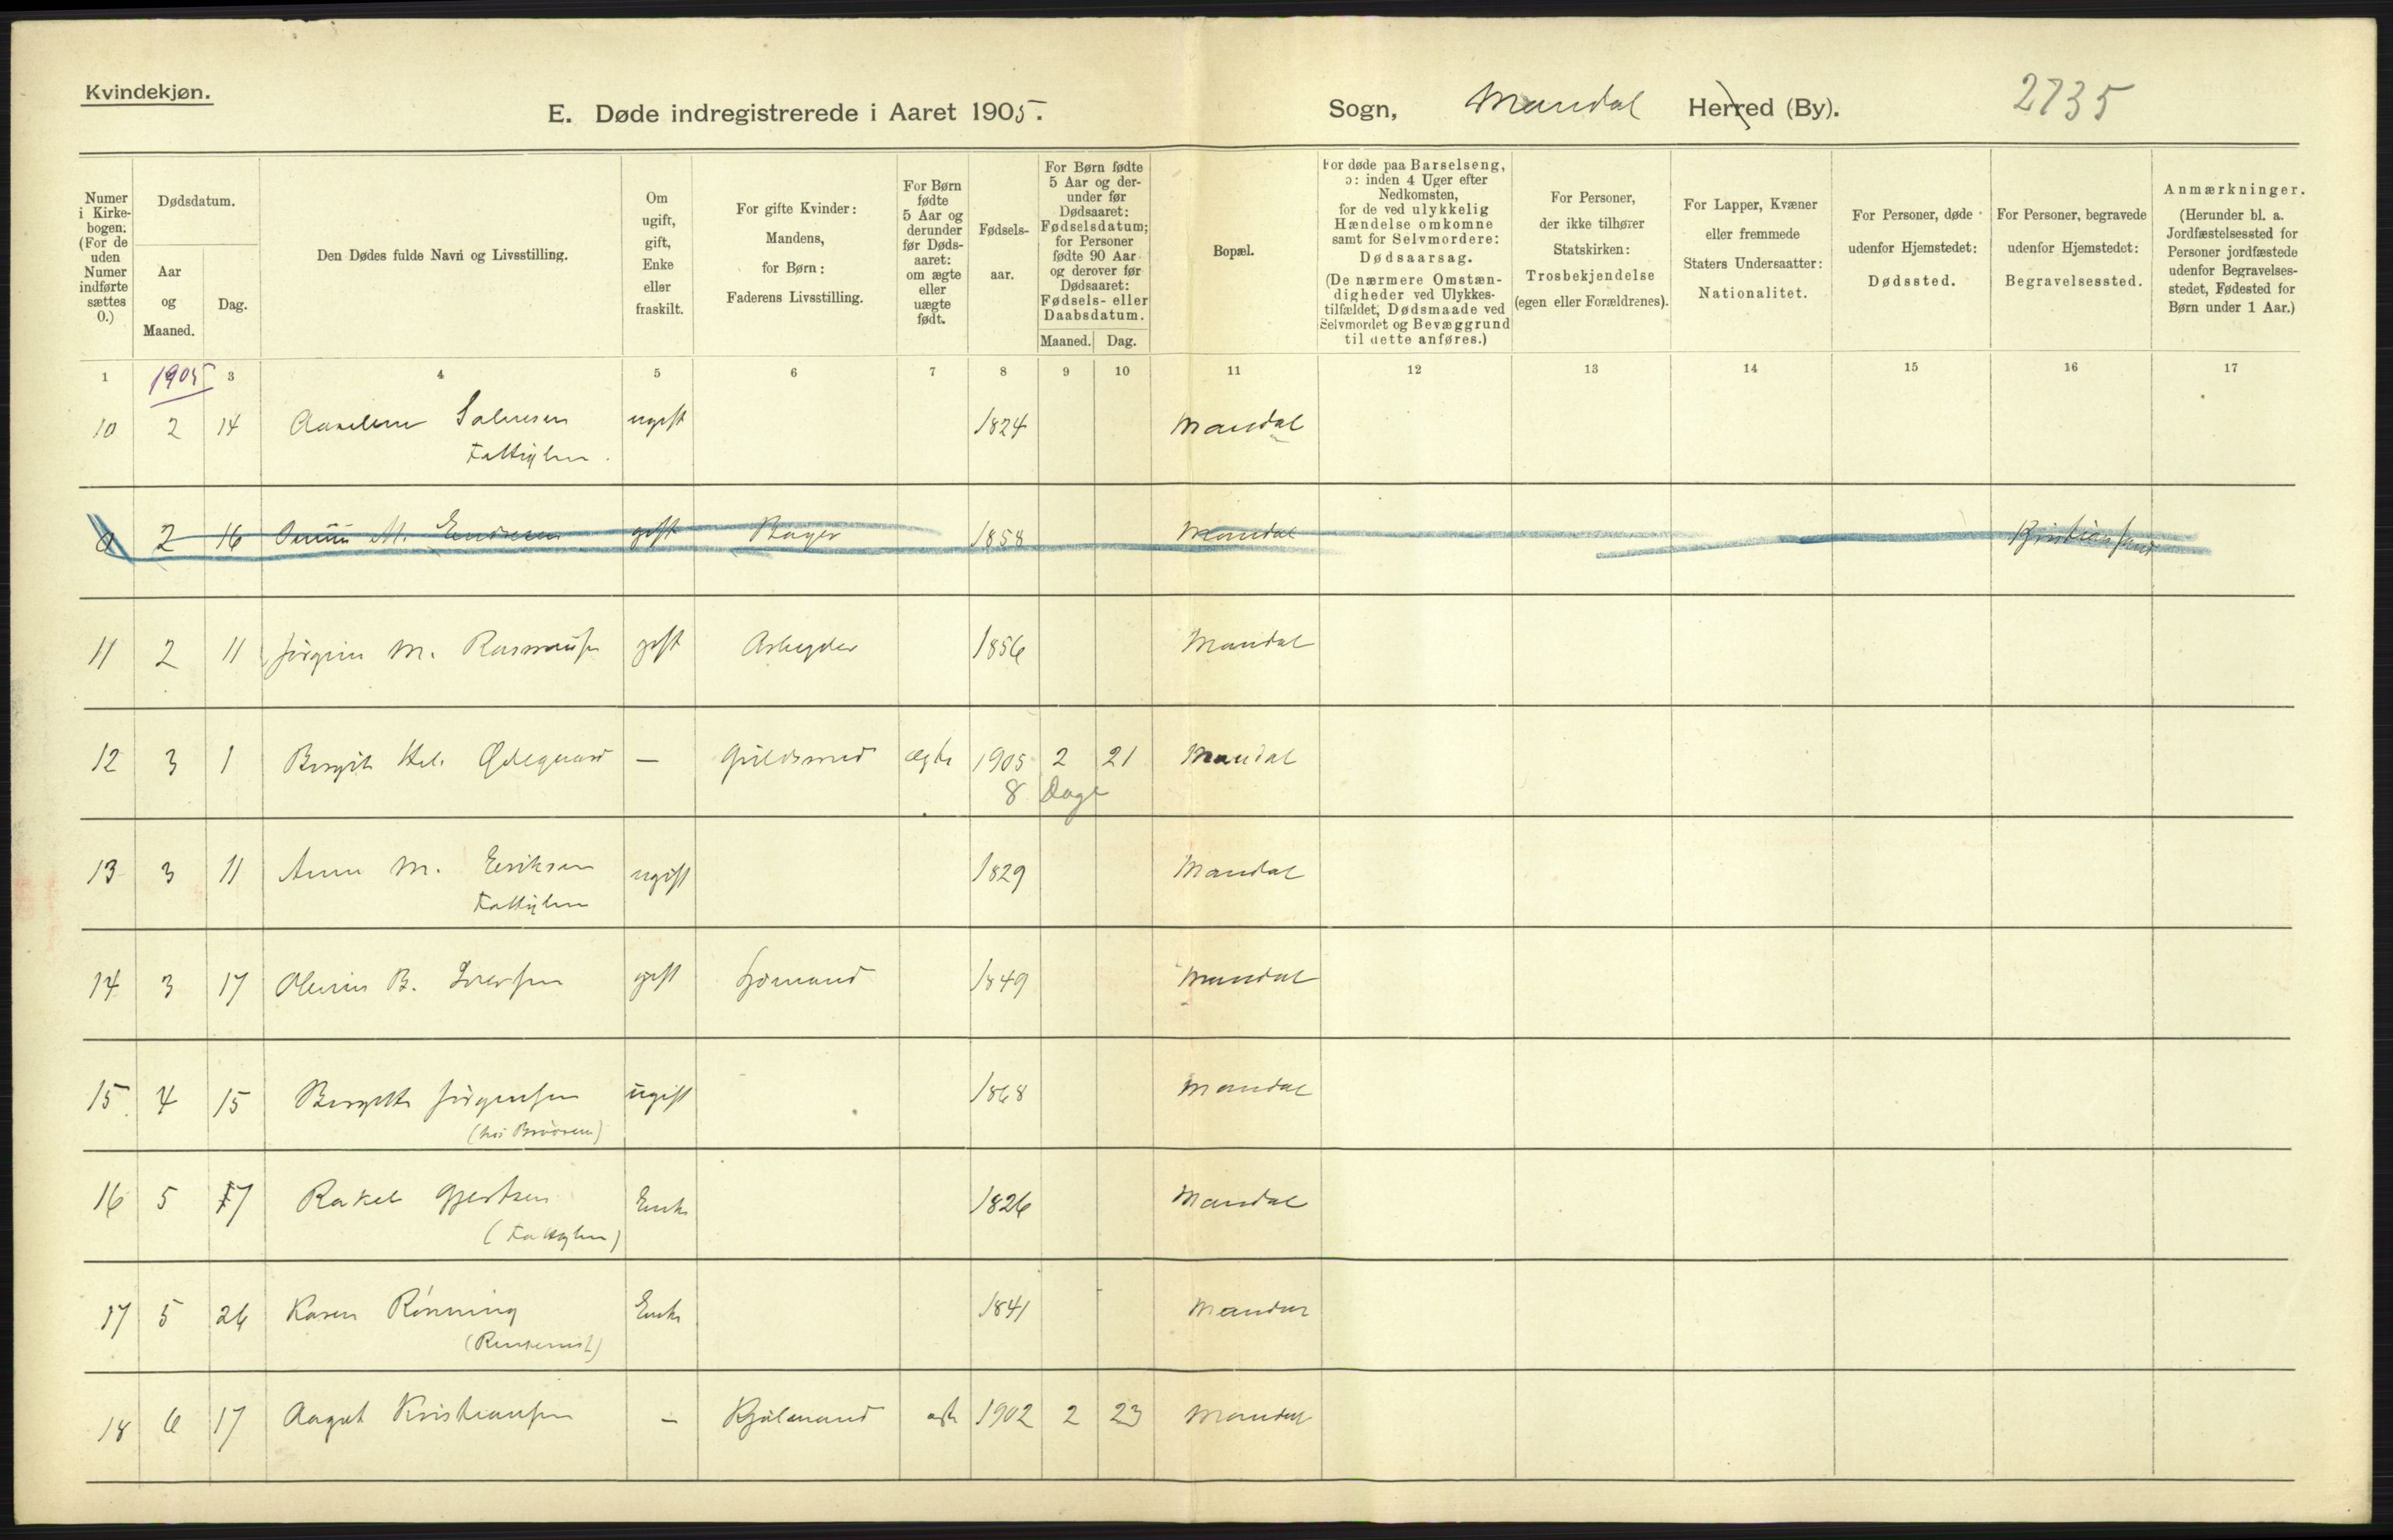 Kvindekjøn.
E. Døde indregistrerede i Aaret 1905.
Sogn, Mandal Herred (By).
2735
Numer i Kirkebogen: (For de uden Numer indførte sættes 0.)
Dødsdatum.
Aar og Maaned.
Dag.
Den Dødes fulde Navn og Livsstilling.
Om ugift, gift, Enke eller fraskilt.
For gifte Kvinder: Mandens, for Børn: Faderens Livsstilling.
For Børn fødte 5 Aar og derunder før Dødsaaret: om ægte eller uægte født.
Fødselsaar.
For Børn fødte 5 Aar og derunder før Dødsaaret: Fødselsdatum; for Personer fødte 90 Aar og derover før Dødsaaret: Fødsels- eller Daabsdatum.
Maaned. Dag.
Bopæl.
For døde paa Barselseng, ɔ: inden 4 Uger efter Nedkomsten, for de ved ulykkelig Hændelse omkomne samt for Selvmordere: Dødsaarsag. (De nærmere Omstændigheder ved Ulykkestilfældet, Dødsmaade ved Selvmordet og Bevæggrund til dette anføres.)
For Personer, der ikke tilhører Statskirken: Trosbekjendelse (egen eller Forældrenes).
For Lapper, Kvæner eller fremmede Staters Undersaatter: Nationalitet.
For Personer, døde udenfor Hjemstedet: Dødssted.
For Personer, begravede udenfor Hjemstedet: Begravelsessted.
Anmærkninger. (Herunder bl. a. Jordfæstelsessted for Personer jordfæstede udenfor Begravelsesstedet, Fødested for Børn under 1 Aar.)
1 1905 3 4 5 6 7 8 9 10 11 12 13 14 15 16 17
10 2 14 Salvesen ugift 1824 Mandal
Fattiglem.
0 2 16 M. gift Bager 1858 Mandal Kristiansand
11 2 11 Jörgine M. Rasmussen gift Arbeyder 1856 Mandal
12 3 1 Bergit Hel. Ødegaard — Guldsmed ægte 1905 2 21 Mandal
8 Dage
13 3 11 Anne M. Eriksen ugift 1829 Mandal
Fattiglem
14 3 17 B. gift Sjømand 1849 Mandal
15 4 15 Jörgensen ugift 1868 Mandal
(hos Broderen)
16 5 17 Rakel Gjertsen Enke 1826 Mandal
(Fattiglem)
17 5 26 Karen Rönning Enke 1841 Mandal
18 6 17 Aagot Kristiansen — 1902 2 23 Mandal